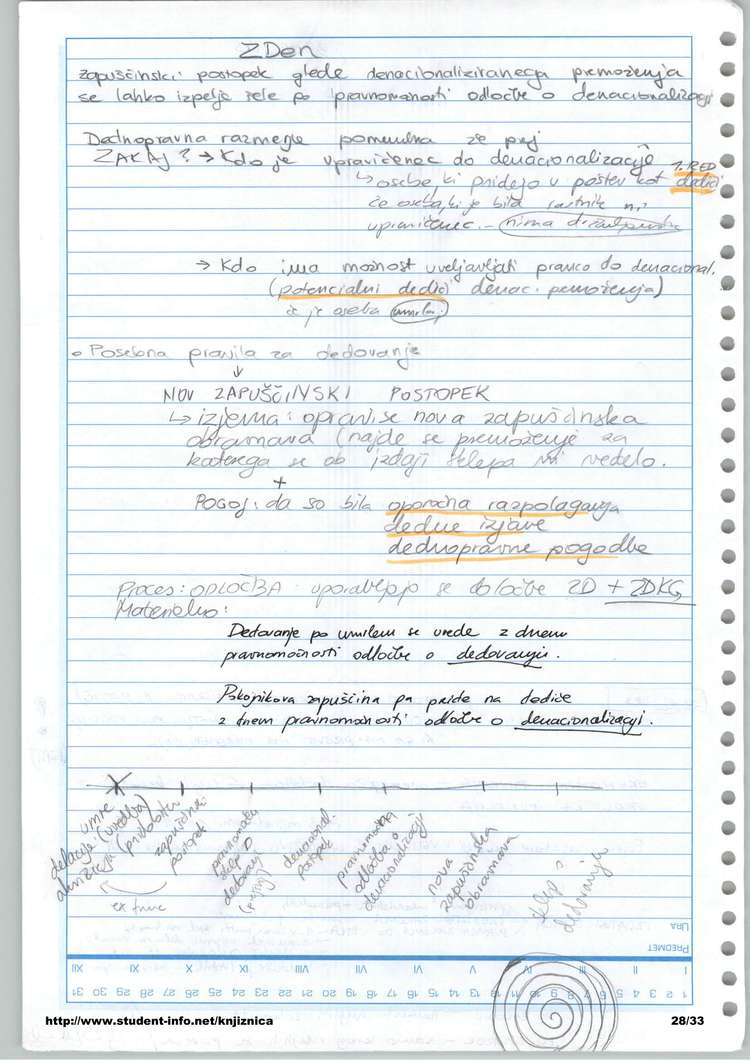 ZDen
zapuščinski postopek glede denacionaliziranega premoženja
se lahko izpelje šele po pravnomočnosti odločbe o denacionalizaciji
Dednopravna razmerja pomembna že prej
ZAKAJ? → Kdo je upravičenec do denacionalizacije
1. RED
↳ osebe, ki pridejo v poštev kot dediči
če oseba, ki je bila lastnik ni
upravičenec. – nima državljanstva
→ Kdo ima možnost uveljavljati pravico do denacional.
(potencialni dediči denac. premoženja)
če je oseba umrla.
• Posebna pravila za dedovanje
↓
NOV ZAPUŠČINSKI POSTOPEK
↳ izjema: opravi se nova zapuščinska
obravnava (najde se premoženje za
katerega se ob izdaji sklepa ni vedelo.
+
POGOJ: da so bila oporočna razpolaganja
dedne izjave
dednopravne pogodbe
Proces: ODLOČBA uporabljajo se določbe ZD + ZDKG
Materialno:
Dedovanje po umrlem se uvede z dnem
pravnomočnosti odločbe o dedovanju.
Pokojnikova zapuščina pa pride na dediče
z dnem pravnomočnosti odločbe o denacionalizaciji.
umre
delacija (uvedba)
akvizicija (pridobitev)
ex tunc
zapuščinski
postopek
pravnomočen
sklep o
dedovanju
(prejšnji)
denacional.
postopek
pravnomočna
odločba o
denacionalizaciji
nova
zapuščinska
obravnava
sklep o
dedovanju
URA
PREDMET
I II III IV V VI VII VIII IX X XI XII
1 2 3 4 5 6 7 8 9 10 11 12 13 14 15 16 17 18 19 20 21 22 23 24 25 26 27 28 29 30 31
http://www.student-info.net/knjiznica
28/33